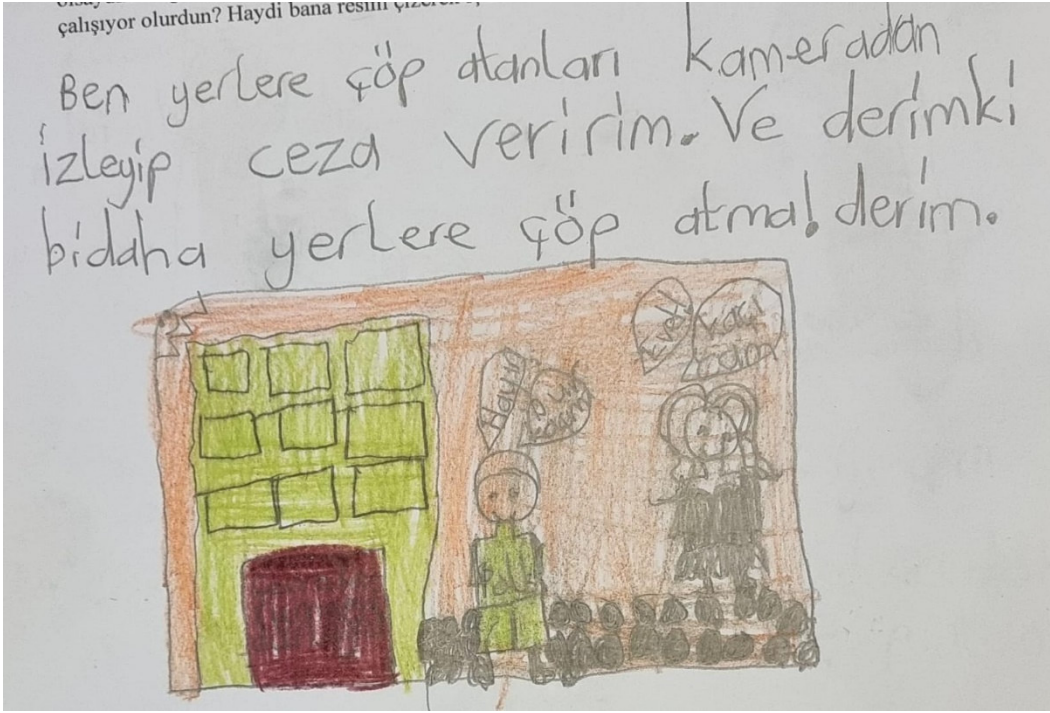 çalışıyor olurdun? Haydi bana resim
Ben yerlere çöp atanları kameradan
izleyip ceza veririm. Ve derimki
biddaha yerlere çöp atma! derim.